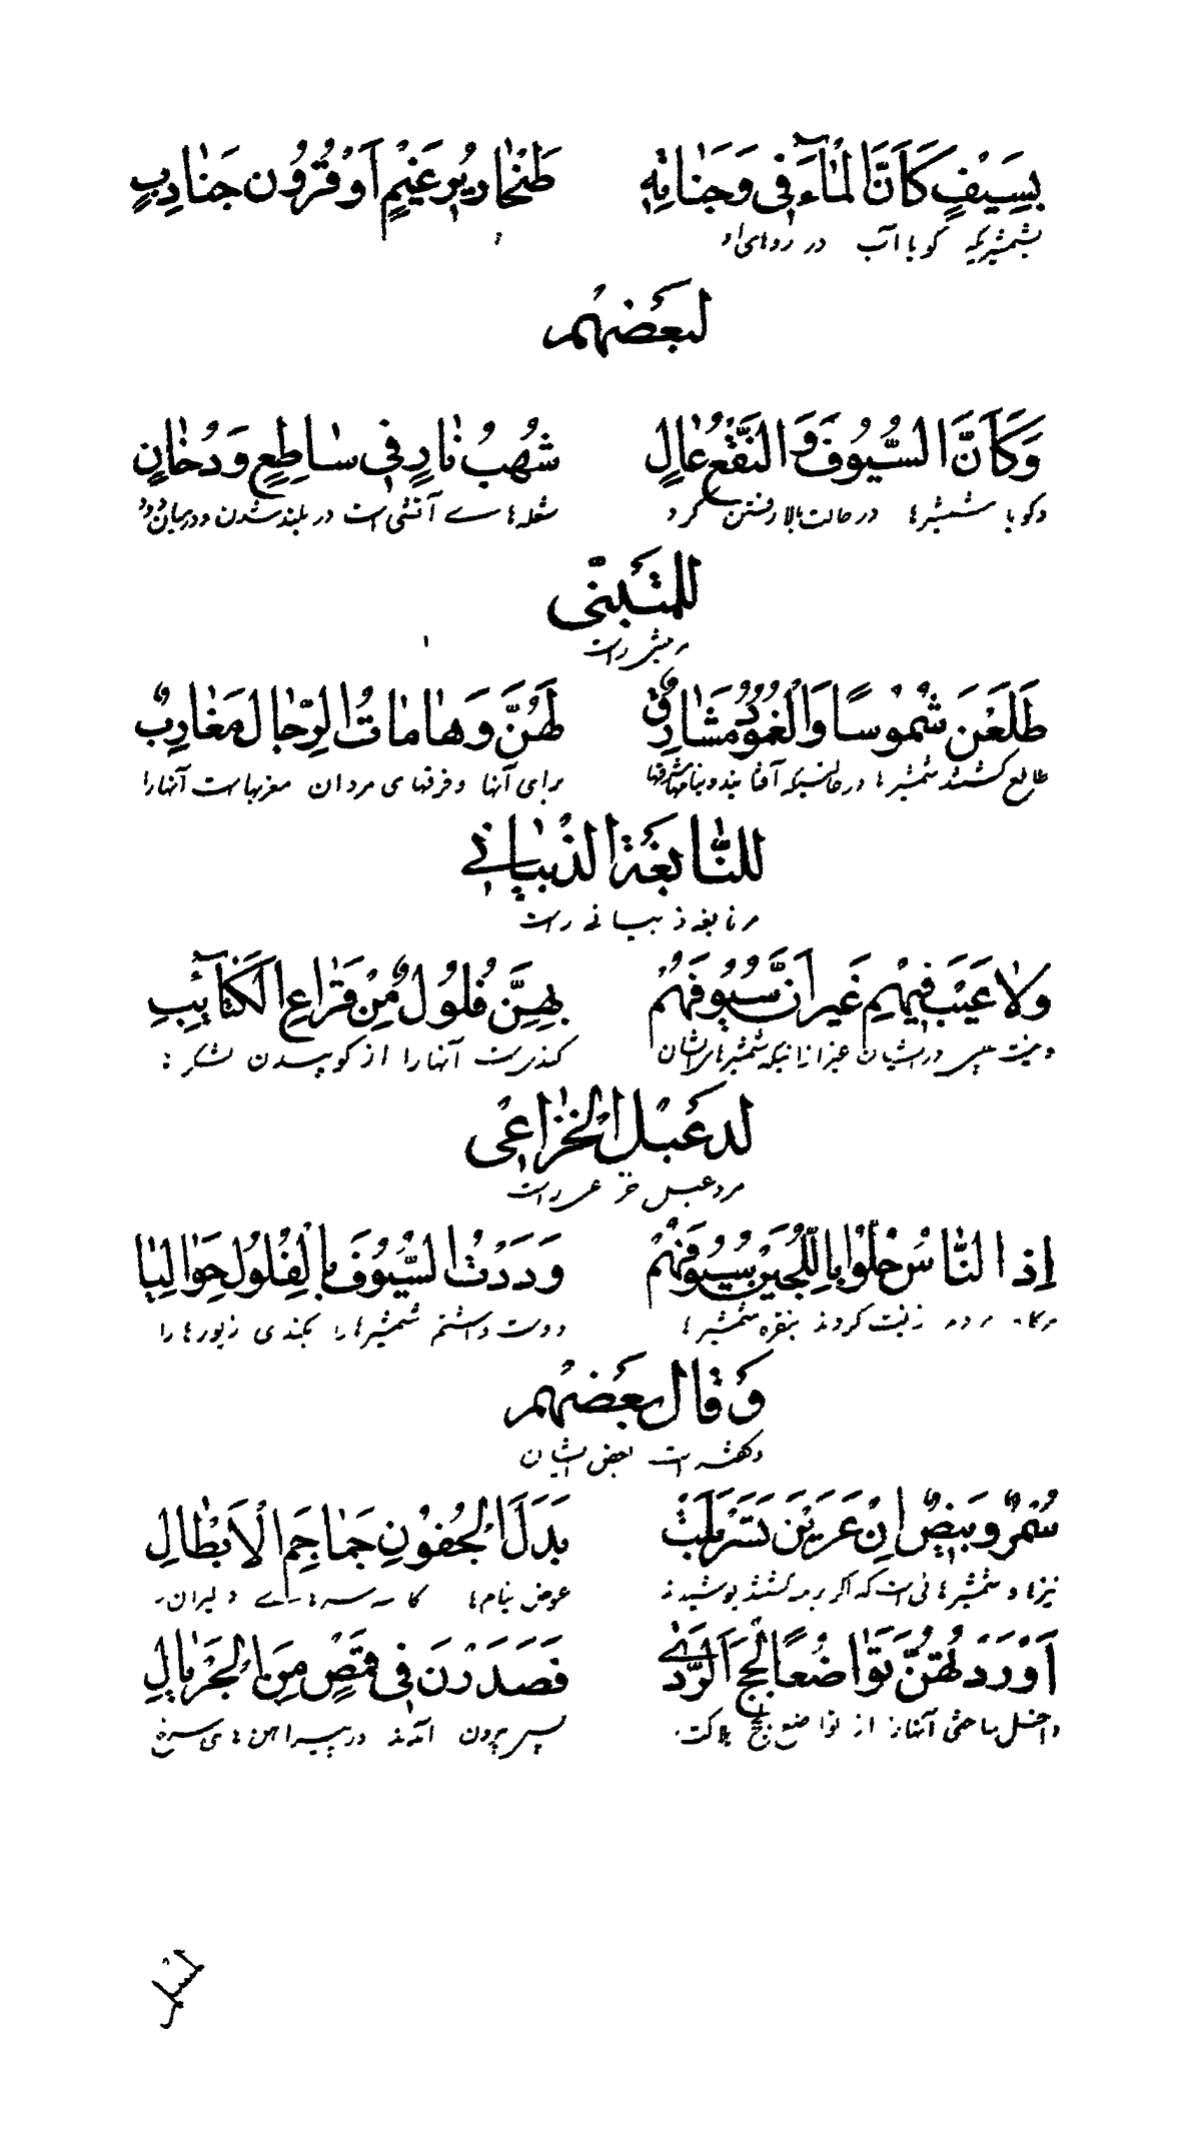 بِسَيْفٍ كَأَنَّ الْمَاءَ فِي وَجَنَاتِهِ طَحَارِيرُ غَيْمٍ أَوْ قُرُونُ جَنَادِبٍ
بشمشیریکه گویا آب در روهای او
لبعضهم
وَكَأَنَّ السُّيُوفَ وَالنَّقْعُ عَالٍ شُهُبُ نَارٍ فِي سَاطِعٍ وَدُخَانٍ
وگویا شمشیرها در حالت بالا رفتن گرد شعله هاے آتشی است در بلند شدن ودرمیان دود
للمتنبّی
مر متنبی راست
طَلَعْنَ شُمُوسًا وَالْغُمُودُ مَشَارِقٌ لَهُنَّ وَهَامَاتُ الرِّجَالِ مَغَارِبٌ
طالع گشتند شمشیرها در حالتیکه آفتابند ونیامها مشرقها برای آنها وفرقهای مردان مغربهاست آنهارا
للنّابغة الذّبیانے
مر نابغه ذبیانے راست
وَلَا عَيْبَ فِيهِمْ غَيْرَ أَنَّ سُيُوفَهُمْ بِهِنَّ فُلُولٌ مِنْ قِرَاعِ الْكَتَائِبِ
ونیست عیبی در ایشان غیر از آنکه شمشیرهای ایشان کندیست آنهارا از کوبیدن لشکر
لدعبل الخزاعی
مر دعبل خزاعی راست
إِذَا النَّاسُ حَلَّوْا بِاللُّجَيْنِ سُيُوفَهُمْ وَدَدْتُ السُّيُوفَ بِالْفُلُولِ حَوَالِيَا
هرگاه مردم زینت کردند بنقره شمشیرها دوست داشتم شمشیرها را بکندی زیورها را
وقال بعضهم
وگفته است بعض ایشان
سُمْرٌ وَبِيضٌ إِنْ عَرِيْنَ تَسَرْبَلَتْ بَدَلَ الْجُفُونِ جَمَاجِمَ الْأَبْطَالِ
نیزها و شمشیرهائی است که اگر برهنه گشتند پوشیدند عوض نیام ها کاسه سرهاے دلیران
أَوْرَدْتَهُنَّ تَوَاضُعًا لُجَجَ الرَّدٰى فَصَدَرْنَ فِي قُمُصٍ مِنَ الْجِرْيَالِ
داخل ساختی آنهارا از تواضع لجّۀ هلاکت پس بیرون آمدند در پیراهن های سرخ